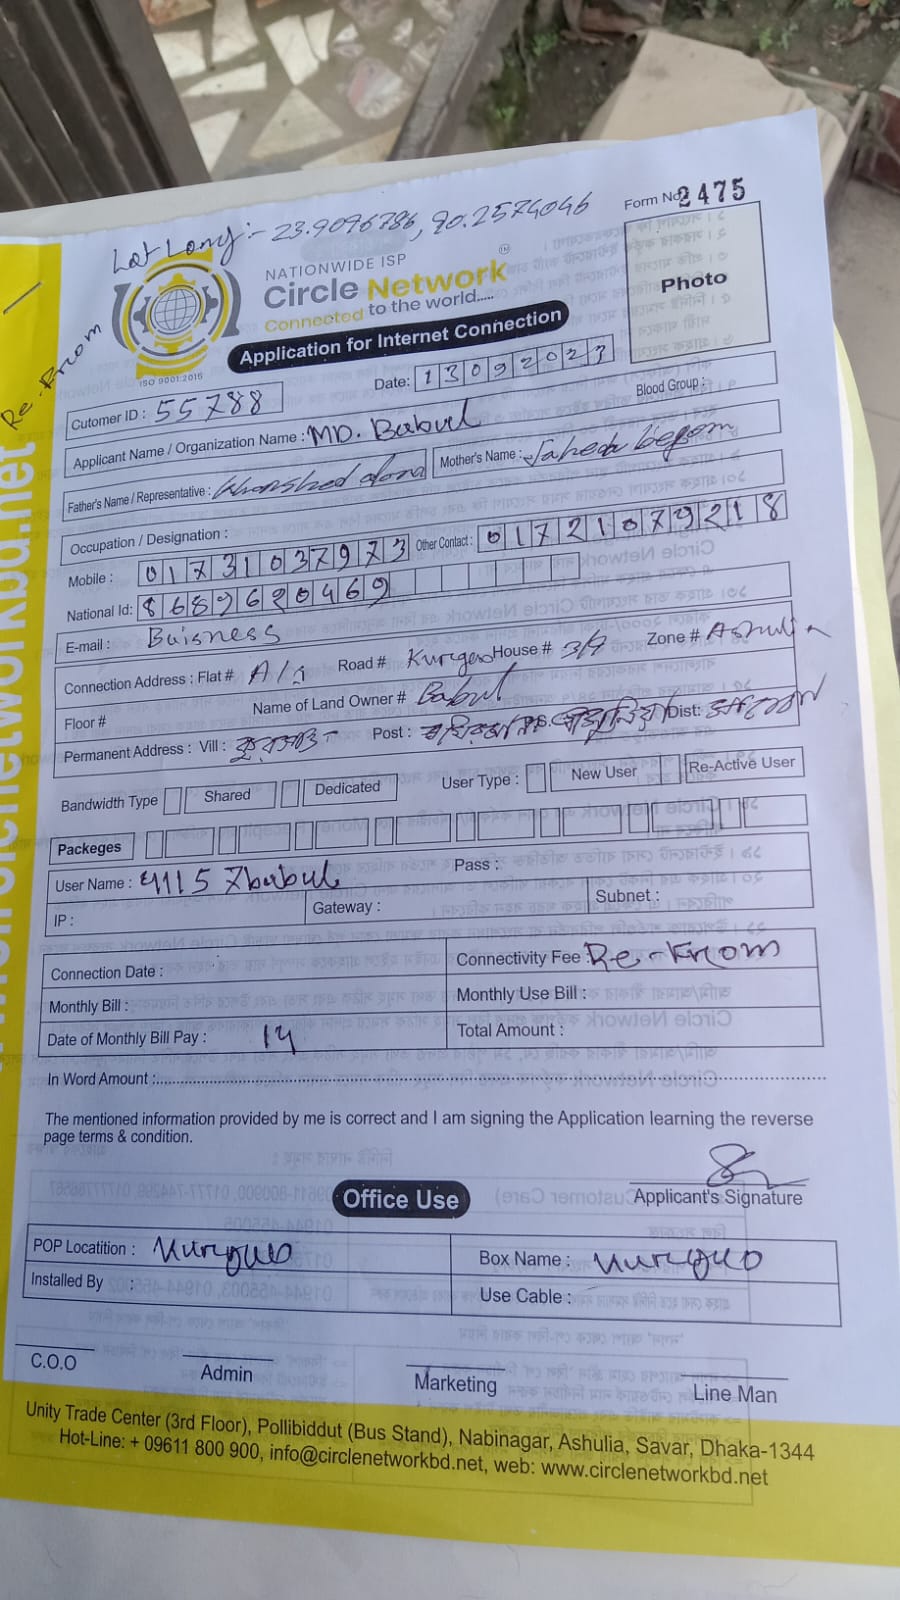 Form No 2475
Lat Long:- 23.9096786, 90.2574046
Re-From
NATIONWIDE ISP
Circle Network
Connected to the world.....
ISO 9001:2015
Photo
Application for Internet Connection
Date: 13092023
Cutomer ID : 55788
Blood Group :
Applicant Name / Organization Name : MD. Babul
Father's Name / Representative : Khorshed Mother's Name :
Occupation / Designation :
Mobile : 01731037973 Other Contact : 01721079218
National Id: 8689620469
E-mail : Buisness
Connection Address : Flat # A/ Road # House # Zone # Ashulia
Floor # Name of Land Owner # Babul
Permanent Address : Vill : Post : P.S. Dist:
Bandwidth Type Shared Dedicated User Type : New User Re-Active User
Packeges
User Name : 41157babul Pass :
IP : Gateway : Subnet :
Connection Date : Connectivity Fee : Re-From
Monthly Bill : Monthly Use Bill :
Date of Monthly Bill Pay : 14 Total Amount :
In Word Amount :
The mentioned information provided by me is correct and I am signing the Application learning the reverse
page terms & condition.
Applicant's Signature
Office Use
POP Locatition : Box Name :
Installed By : Use Cable :
C.O.O Admin Marketing Line Man
Unity Trade Center (3rd Floor), Pollibiddut (Bus Stand), Nabinagar, Ashulia, Savar, Dhaka-1344
Hot-Line: + 09611 800 900, info@circlenetworkbd.net, web: www.circlenetworkbd.net